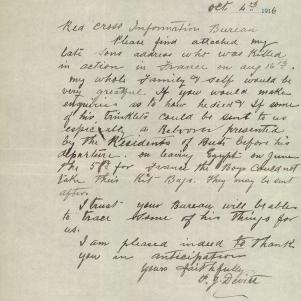 Oct 4th 1916
Red Cross Information Bureau
Please find attached my
late sons address who was killed
in action in France on aug 16th.
my whole Family & self would be
very greatful If you would make
enquiries as to how he died & If some
of his trinklets could be sent to us
especially a presented
by the Residents of before his
departure. on leaving Egypt on June
the for France the Boys could not
take their Kit Bags. They may be sent
after.
I trust your Bureau will be able
to trace some of his things for
us.
I am pleased indeed to thank
you in anticipation
yours faithfully
J Devitt